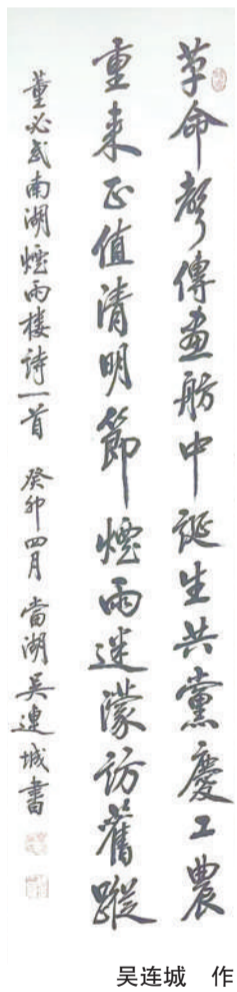 革命聲傳畫舫中誕生共黨慶工農
重来正值清明節煙雨迷濛訪舊蹤
董必武南湖煙雨楼诗一首 癸卯四月 當湖吴連城書
吴连城 作